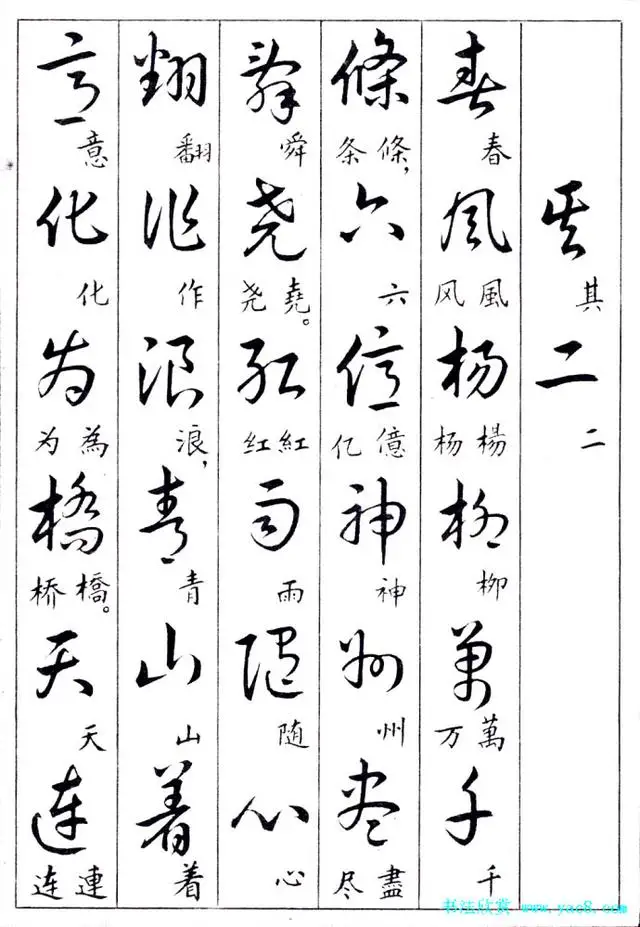 其二
其 二
春风杨柳萬千
春 風风 楊杨 柳 萬万 千
條六億神州尽
條,条 六 億亿 神 州 盡尽
舜尧红雨随心
舜 堯。尧 紅红 雨 随 心
翻作浪青山着
翻 作 浪, 青 山 着
意化为橋天连
意 化 為为 橋。桥 天 連连
书法欣赏 www.yac8.com